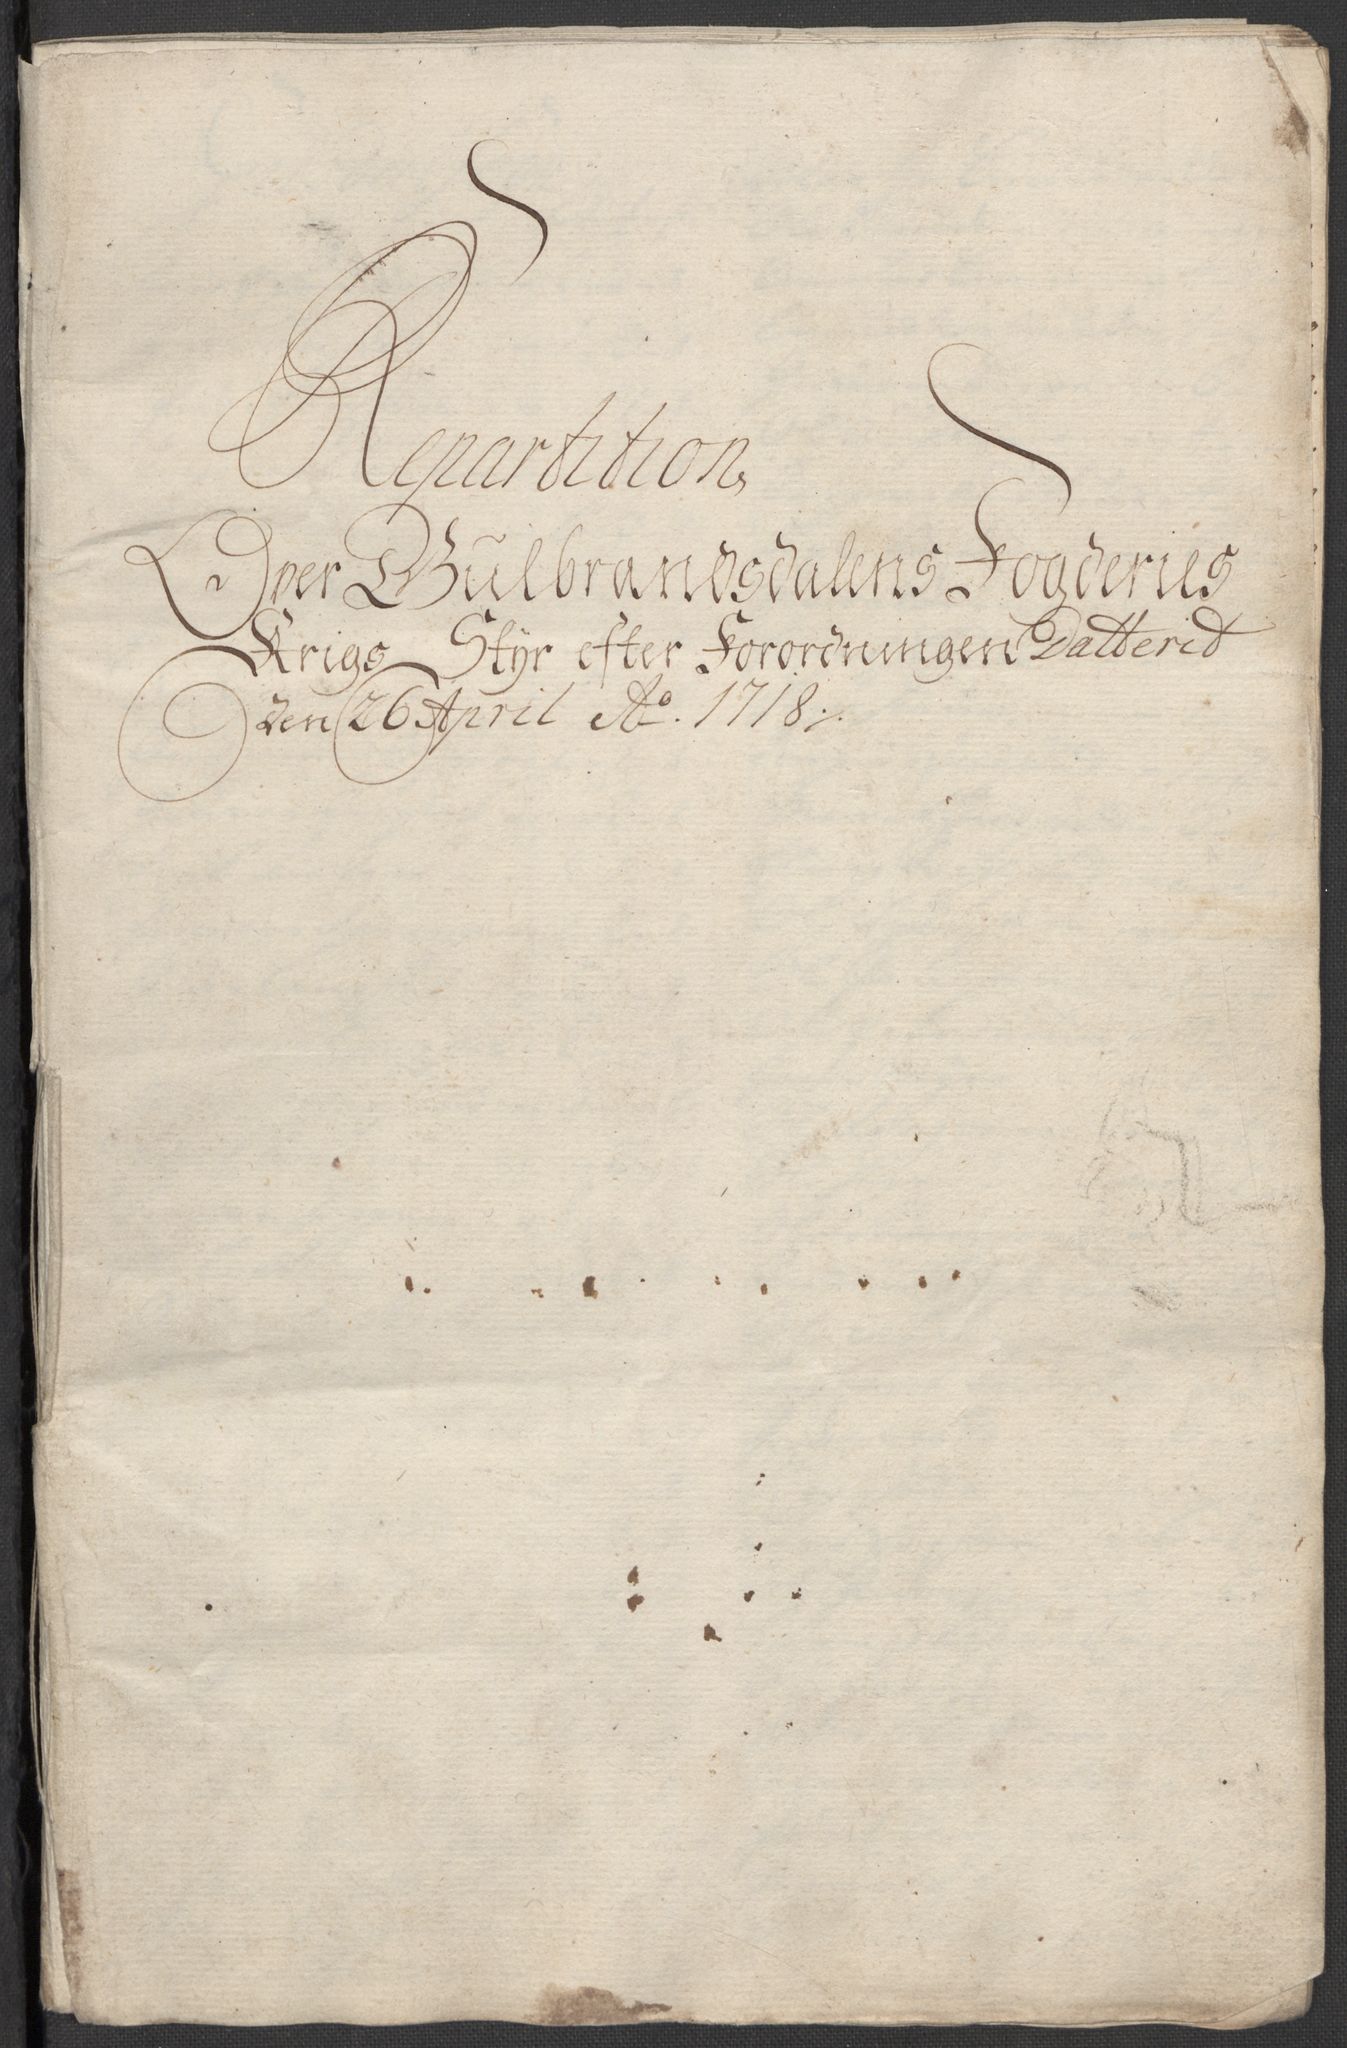 Repartition
Over Gŭlbrandsdalens Fogderies
Krigs Styr efter Forordningen Datterit
den 26 April Ao. 1718 ./.